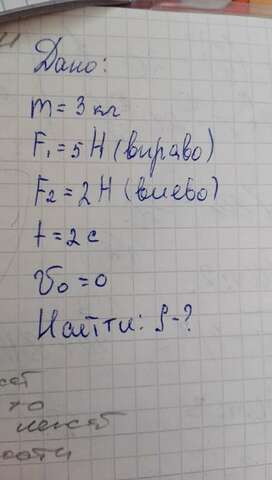 Дано:
m = 3 кг
F₁ = 5 Н (вправо)
F₂ = 2 Н (влево)
t = 2 с
v₀ = 0
Найти: S - ?
то
лежат